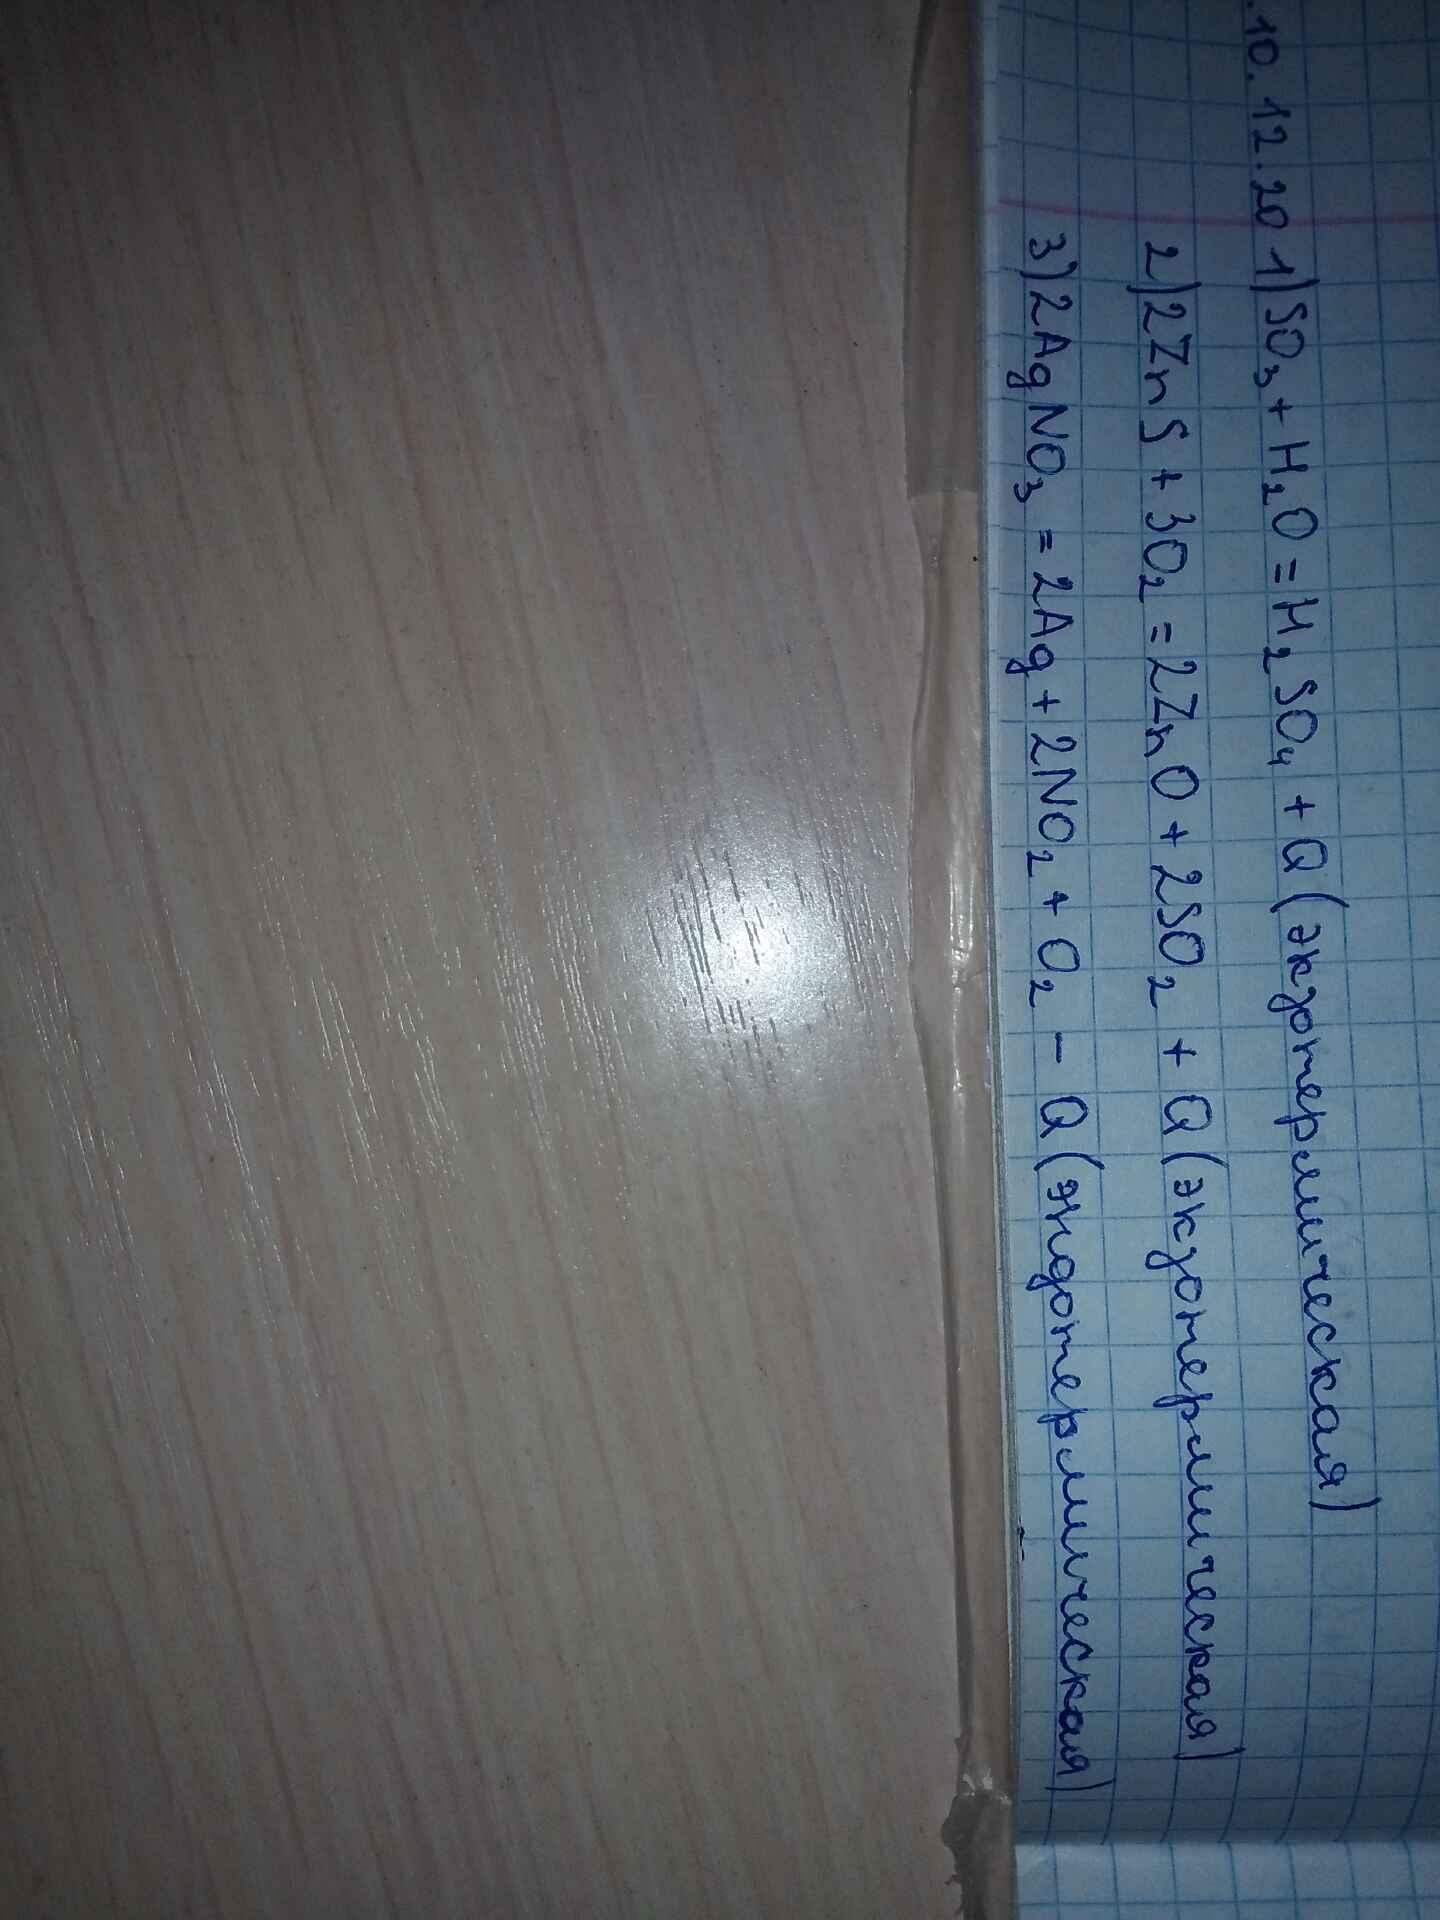 .10.12.20 1) SO₃ + H₂O = H₂SO₄ + Q (экзотермическая)
2) 2ZnS + 3O₂ = 2ZnO + 2SO₂ + Q (экзотермическая)
3) 2AgNO₃ = 2Ag + 2NO₂ + O₂ - Q (эндотермическая)